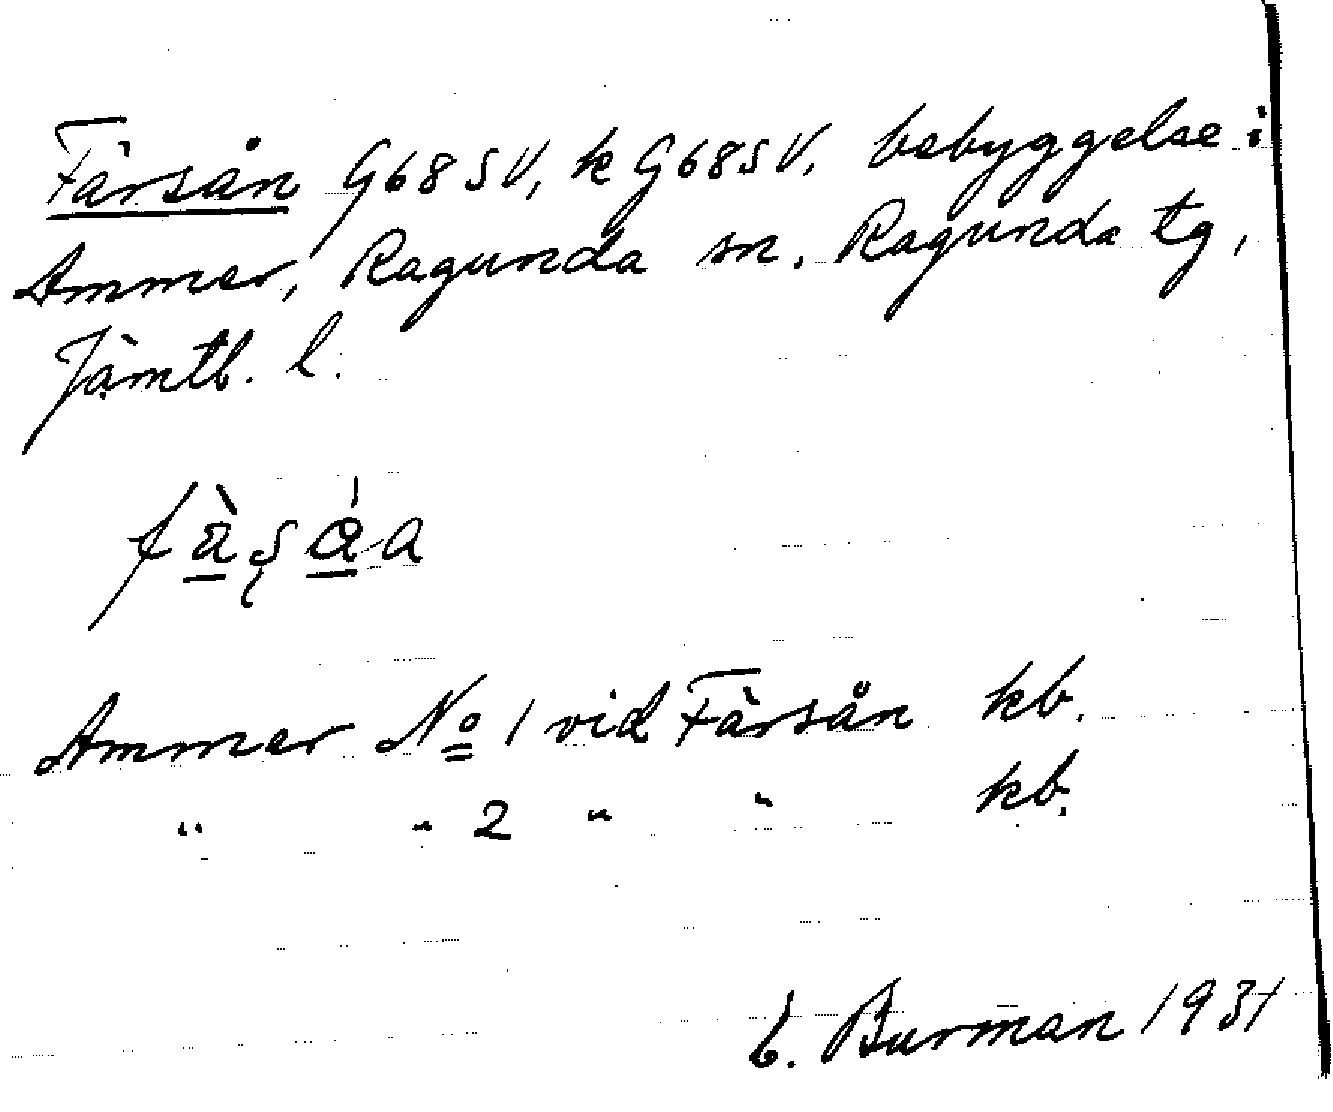 Färsån G68SV, k G68SV, bebyggelse i
Ammer, Ragunda sn. Ragunda tg,
Jämtl. l.
Ammer No 1 vid Färsån kb.
" " 2 " " kb.
E. Burman 1931